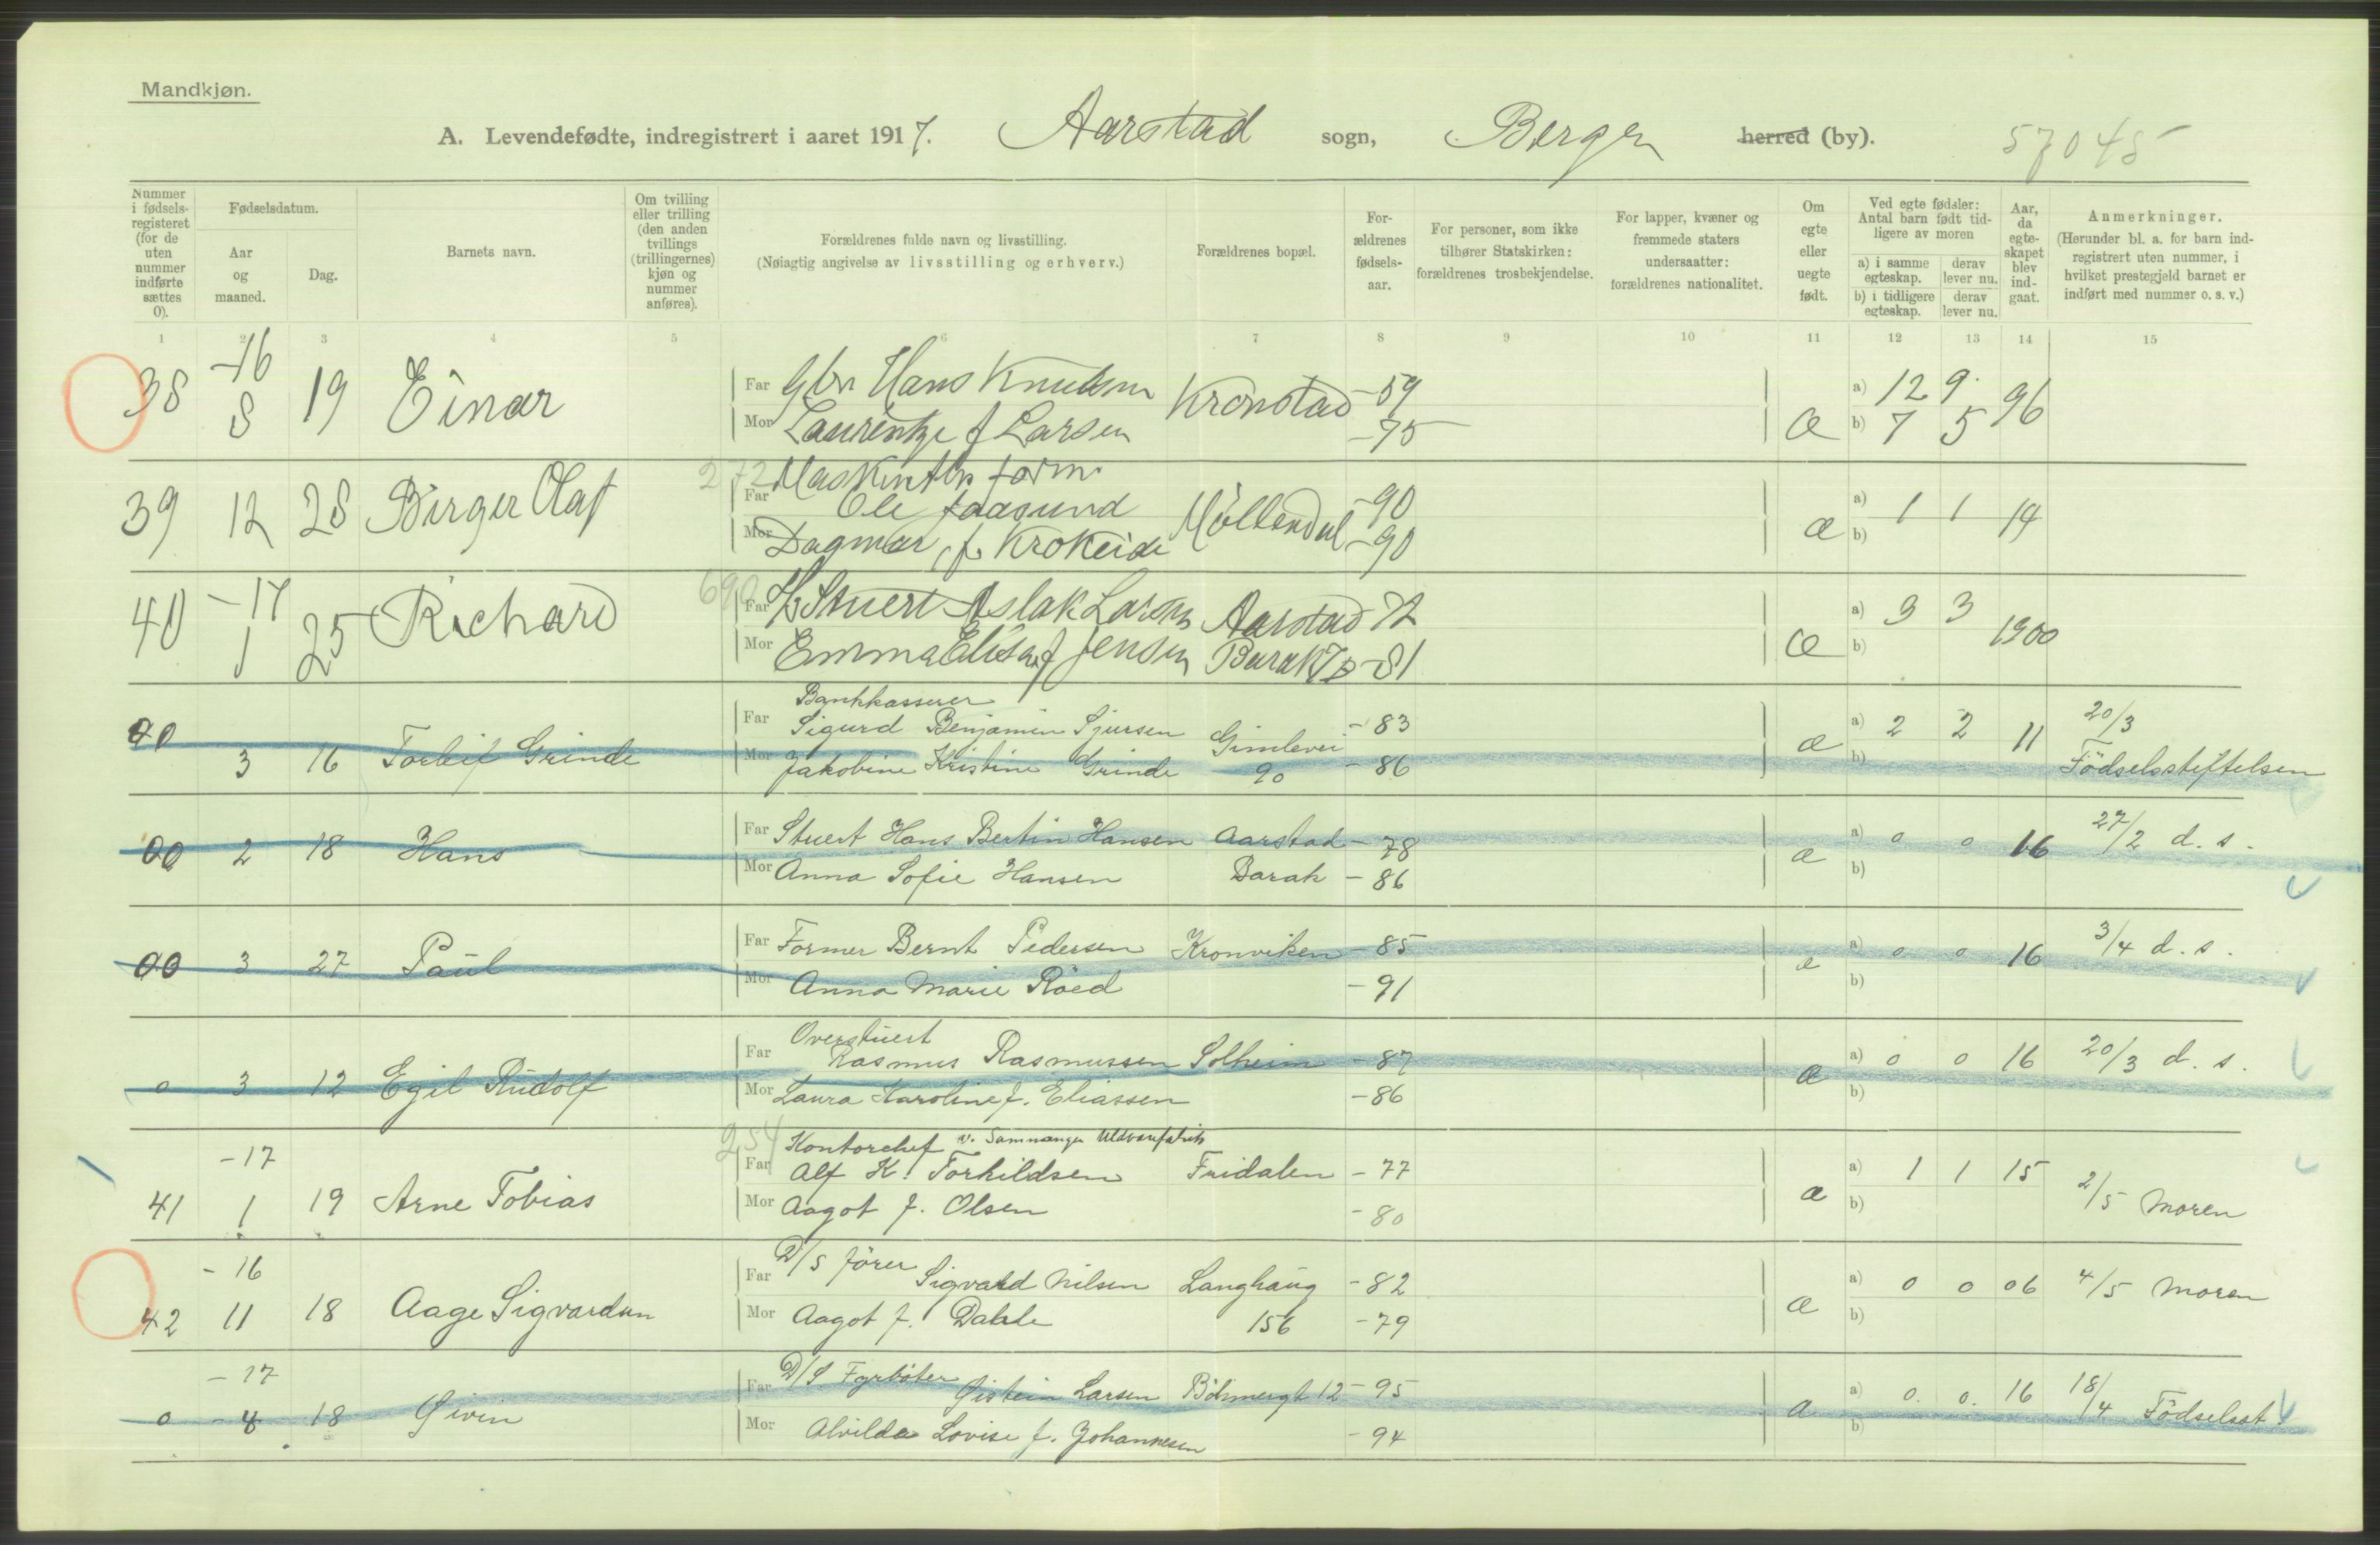 Mandkjøn.
A. Levendefødte, indregistrert i aaret 1917. Aarstad sogn, Bergen herred (by). 57045
Nummer i fødselsregisteret (for de uten nummer indførte sættes 0).
Fødselsdatum.
Aar og maaned.
Dag.
Barnets navn.
Om tvilling eller trilling (den anden tvillings (trillingernes) kjøn og nummer anføres).
Forældrenes fulde navn og livsstilling.
(Nøiagtig angivelse av livsstilling og erhverv.)
Forældrenes bopæl.
Forældrenes fødselsaar.
For personer, som ikke tilhører Statskirken: forældrenes trosbekjendelse.
For lapper, kvæner og fremmede staters undersaatter: forældrenes nationalitet.
Om egte eller uegte født.
Ved egte fødsler: Antal barn født tidligere av moren
a) i samme egteskap. derav lever nu.
b) i tidligere egteskap. derav lever nu.
Aar, da egteskapet blev indgaat.
Anmerkninger.
(Herunder bl. a. for barn indregistrert uten nummer, i hvilket prestegjeld barnet er indført med nummer o. s. v.)
1 2 3 4 5 6 7 8 9 10 11 12 13 14 15
-16
38 8 19 Einar Far Gbr Hans Knutsen Kronstad -59 a) 12 9 96
Mor Laurentze f Larsen -75 Æ b) 7 5
272 Maskinarb form
39 12 28 Birger Olaf Far Ole Faasund Möllendal -90 a) 1 1 14
Mor Dagmar f. Krokeide -90 æ b)
-17
40 1 25 Richard 690 Far Stuert Aslak Larsen Aarstad 72 a) 3 3 1900
Mor Emma Elisa f Jensen Barak -81 Æ b)
Bankkasserer
00 3 16 Torleif Grinde Far Sigurd Benjamin Sjursen Gimlevei -83 a) 2 2 11 20/3
Mor Jakobine Kristine Grinde 90 -86 æ b) Födselsstiftelsen
00 2 18 Hans Far Stuert Hans Bertin Hansen Aarstad -78 a) 0 0 16 27/2 d. s.
Mor Anna Sofie Hansen Barak -86 æ b)
00 3 27 Paul Far Former Bernt Pedersen Kronviken -85 a) 0 0 16 3/4 d. s.
Mor Anna Marie Röed -91 æ b)
Overstuert
0 3 12 Egil Rudolf Far Rasmus Rasmussen Solheim -87 a) 0 0 16 20/3 d. s.
Mor Laura Karoline f. Eliassen -86 æ b)
254 Kontorchef v. Samnanger Uldvarefabrik
-17
41 1 19 Arne Tobias Far Alf K. Torkildsen Fridalen -77 a) 1 1 15 2/5 Moren
Mor Aagot f. Olsen -80 æ b)
-16
42 11 18 Aage Sigvardsen Far D/S förer Sigvald Nilsen Langhaug -82 a) 0 0 06 4/5 Moren
Mor Aagot f. Dahle 156 -79 æ b)
-17
0 4 18 Øivin Far D/S Fyrböter Øistein Larsen Böhmergt 12 -95 a) 0. 0. 16 18/4 Födselsst.
Mor Alvilda Lovise f. Johannesen -94 æ b)